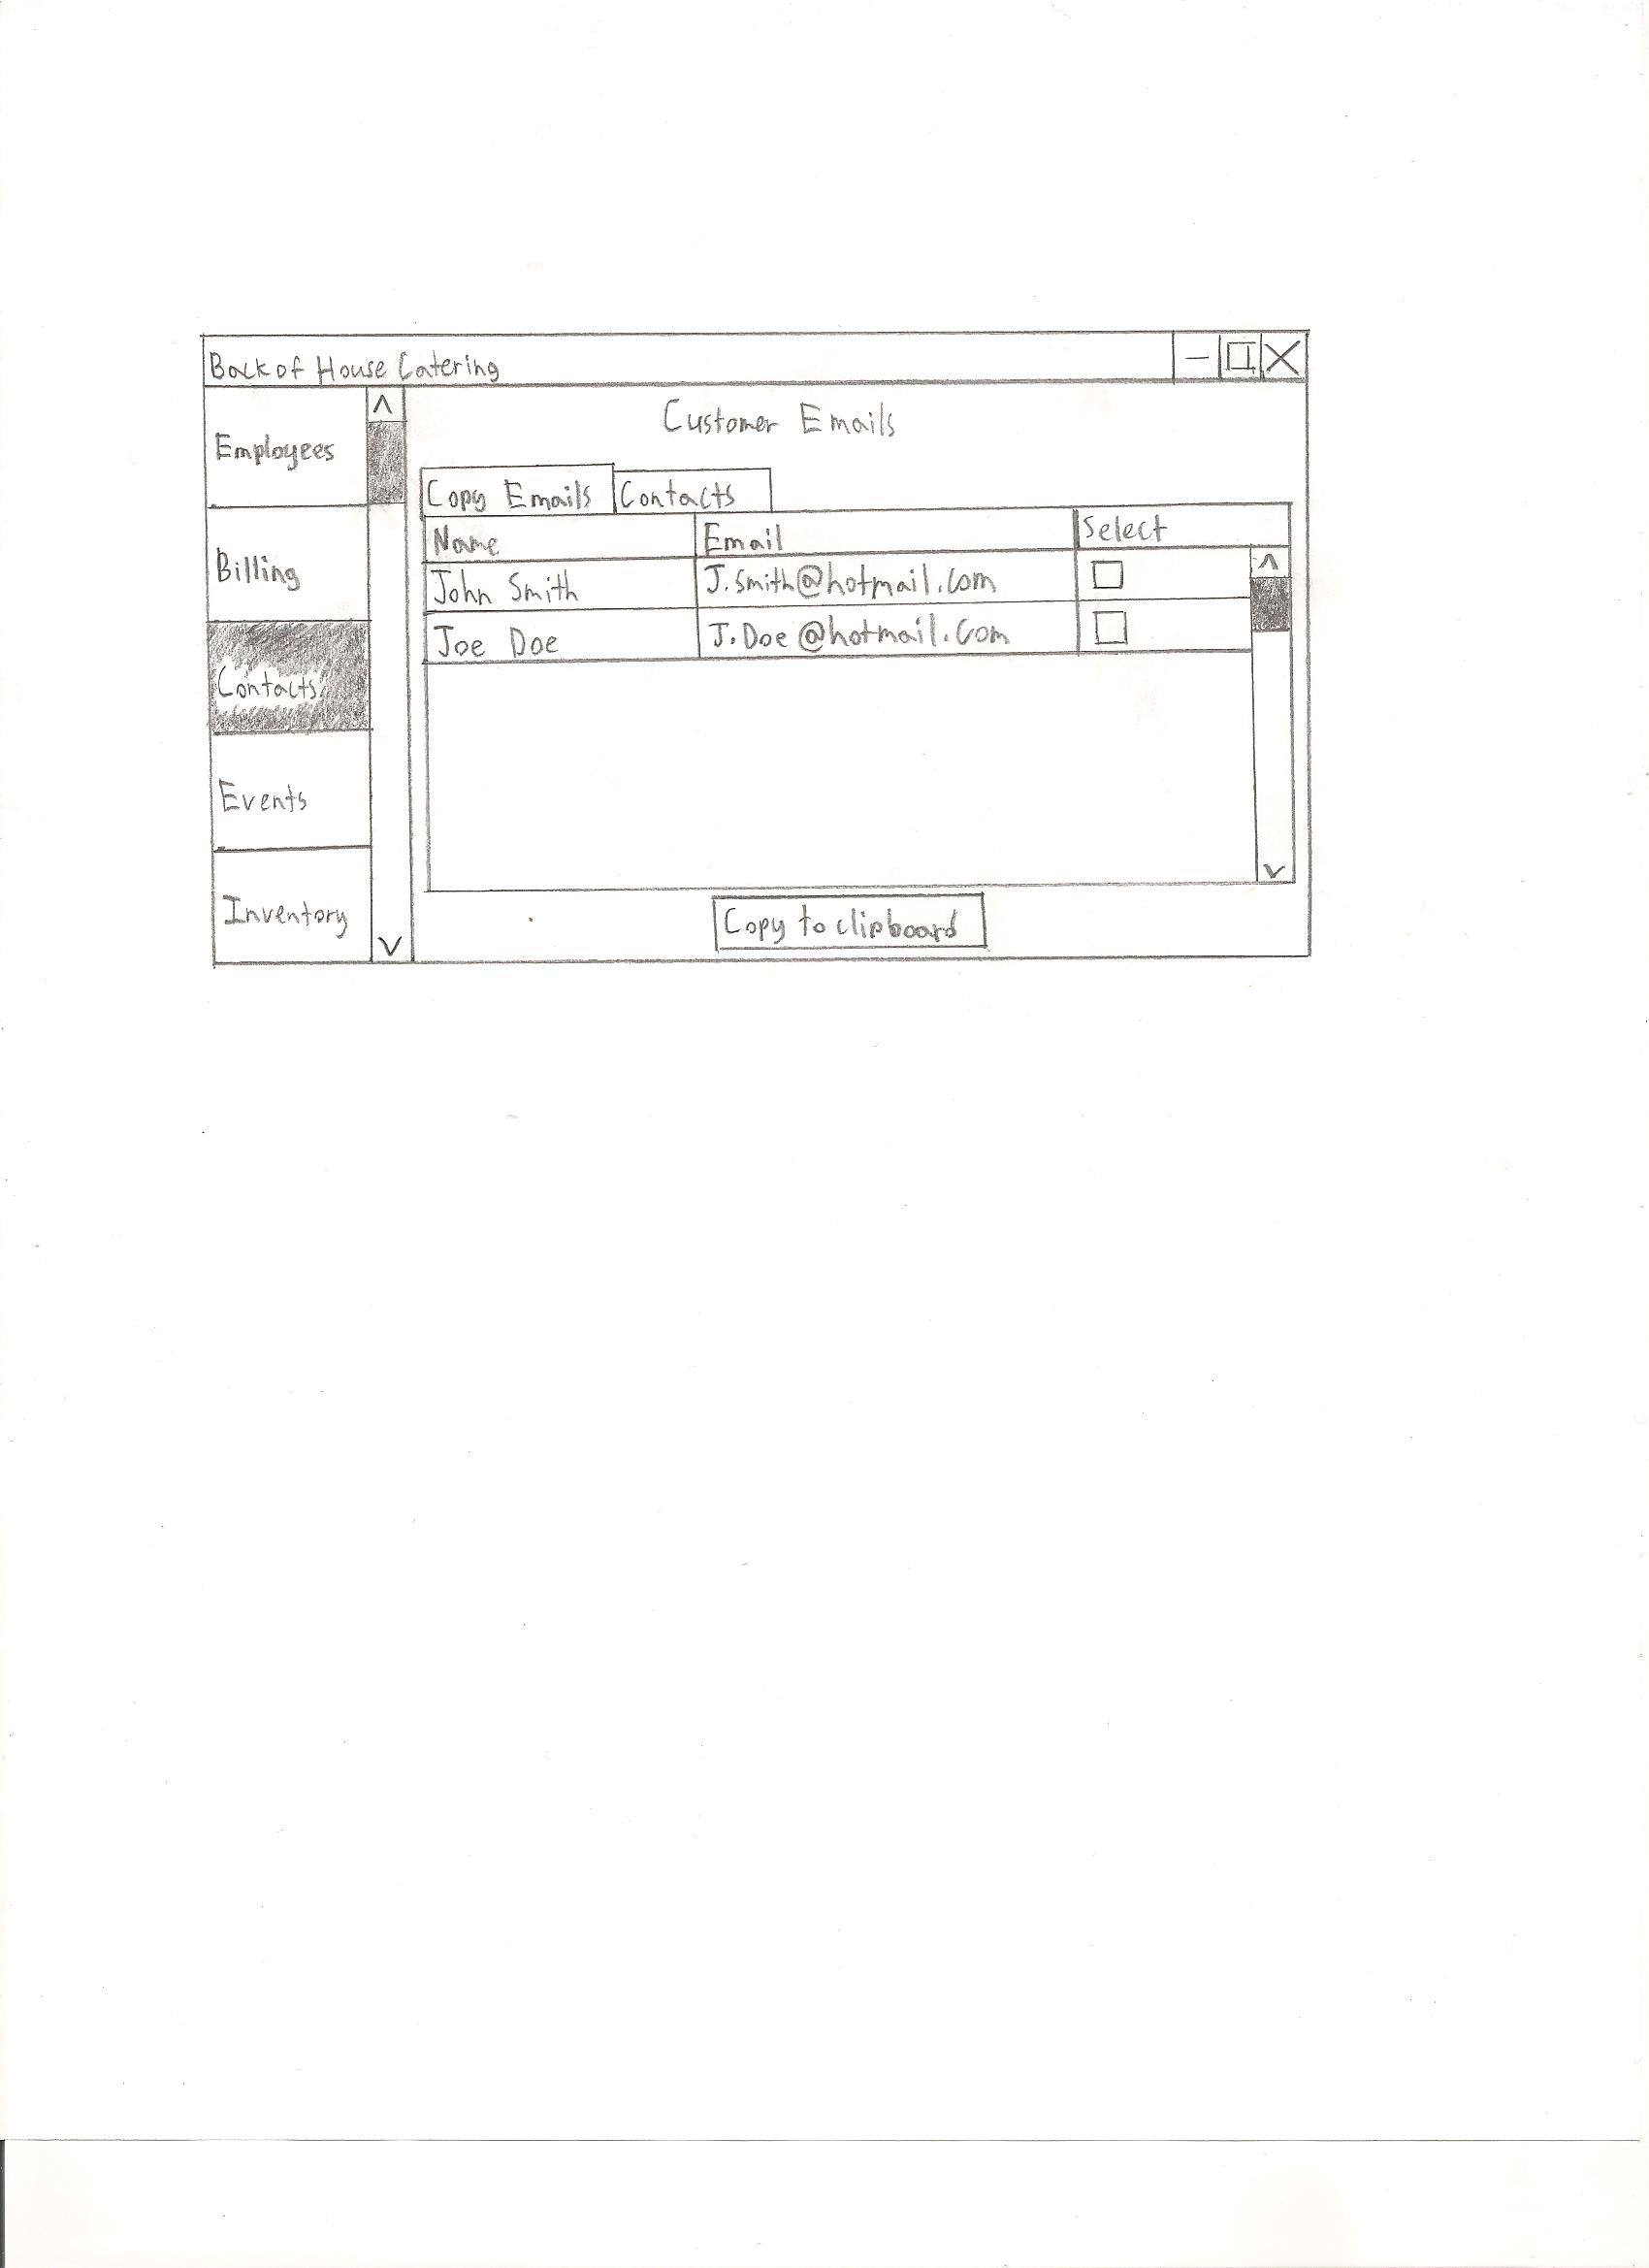 Back of House Catering
Customer Emails
Employees
Billing
Contacts
Events
Inventory
Copy Emails Contacts
Name Email Select
John Smith J.Smith@hotmail.com
Joe Doe J.Doe@hotmail.com
Copy to clipboard